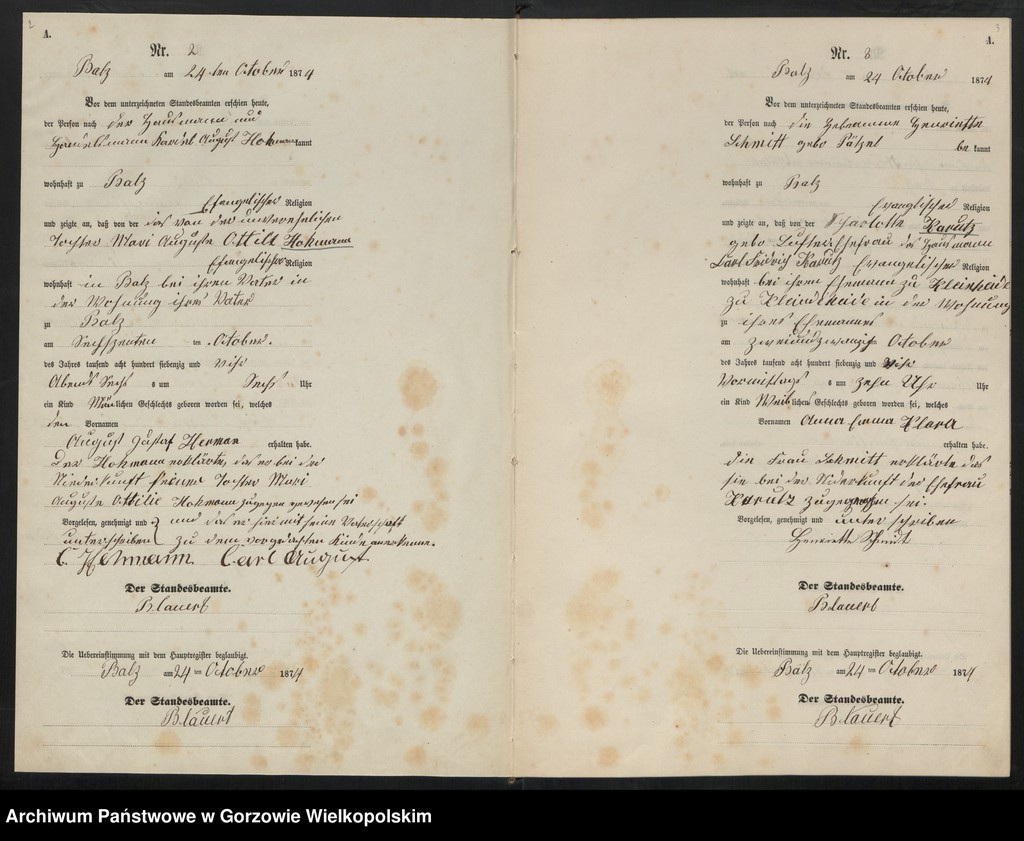 2
A.
Nr. 2
Balz am 24 ten October 1874
Vor dem unterzeichneten Standesbeamten erschien heute,
der Person nach der Hausmann und
Handelsmann Karl August Hohmann kannt
wohnhaft zu Balz
Efangelischer Religion
und zeigte an, daß von der das von der unverehelichen
Tochter Mari Auguste Ottilt Hohmann
Efangelischer Religion
wohnhaft in Balz bei ihren Vater in
der Wohnung ihres Vater
zu Balz
am Sechszenten ten October.
des Jahres tausend acht hundert siebenzig und Vihr
Abends Sechs s um Sechs Uhr
ein Kind Mänlichen Geschlechts geboren worden sei, welches
den Vornamen
August Gustaf Herman erhalten habe.
Der Hohmann erklärte, das er bei der
Niederkunft seiner Tochter Mari
Auguste Ottilie Hohmann zugegen gewesen sei
Vorgelesen, genehmigt und und das er sei mit seine Vaterschaft
unterschrieben zu dem vorgedachten Kinde anerkenne.
C. Hohmann Carl August
Der Standesbeamte.
Blauert
Die Uebereinstimmung mit dem Hauptregister beglaubigt.
Balz am 24 ten October 1874
Der Standesbeamte.
Blauert
3
A.
Nr. 3
Balz am 24 October 1874
Vor dem unterzeichneten Standesbeamten erschien heute,
der Person nach die Hebeamme Henriette
Schmitt gebo Pätzel be kannt
wohnhaft zu Balz
Evanglischer Religion
und zeigte an, daß von der Scharlotte Karutz
gebo Ehefrau des Hausmann
Carl Fridrich Karutz Evangelischer Religion
wohnhaft bei ihren Ehemann zu Kleinheide
zu Kleinheide in der Wohnung
zu ihres Ehemannes
am zweiundzwanzig October
des Jahres tausend acht hundert siebenzig und Vihr
Vormittags s um zehn Uhr Uhr
ein Kind Weiblichen Geschlechts geboren worden sei, welches
Vornamen Anna Emma Klara
erhalten habe.
die Frau Schmitt erklärte das
sie bei der Niderkunft der Ehefrau
Karutz zugegen sei.
Vorgelesen, genehmigt und unter schriben
Henriette Schmidt
Der Standesbeamte.
Blauert
Die Uebereinstimmung mit dem Hauptregister beglaubigt.
Balz am 24 ten October 1874
Der Standesbeamte.
Blauert
Archiwum Państwowe w Gorzowie Wielkopolskim